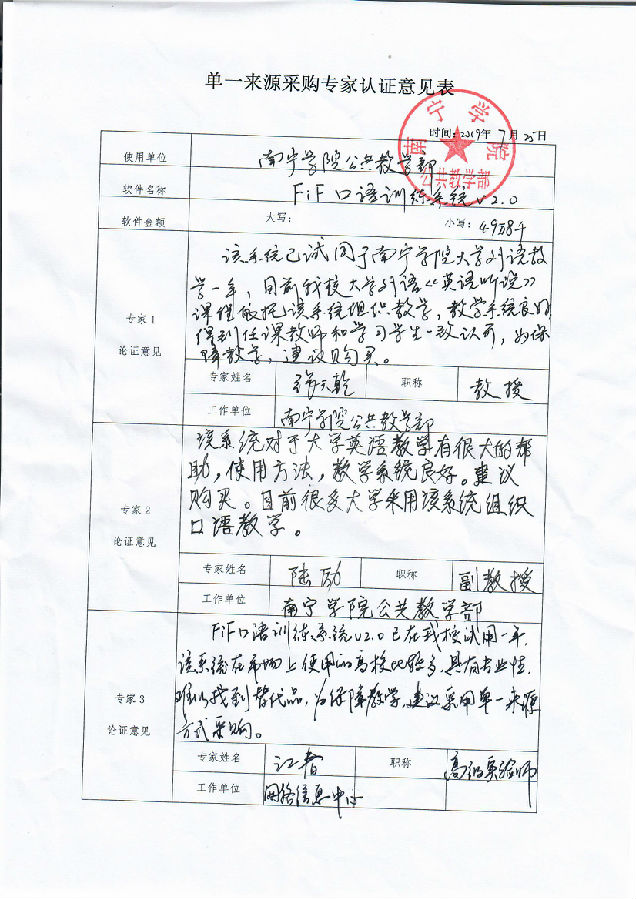 单一来源采购专家认证意见表
南宁学院
公共教学部
时间:2019年7月25日
使用单位 南宁学院公共教学部
软件名称 FiF口语训练系统v2.0
软件金额 大写: 小写:
专家1
论证意见
该系统已试用于南宁学院大学外语教
学一年,目前我校大学外语《英语听说》
课程依托该系统组织教学,教学系统良好
得到任课教师和学习学生一致认可,为保
障教学,建议购买。
专家姓名 职称 教授
工作单位 南宁学院公共教学部
专家2
论证意见
该系统对于大学英语教学有很大的帮
助,使用方法,教学系统良好。建议
购买。目前很多大学采用该系统组织
口语教学。
专家姓名 陆励 职称 副教授
工作单位 南宁学院公共教学部
专家3
论证意见
FiF口语训练系统v2.0已在我校试用一年,
该系统在市场上使用的高校比较多,具有专业性,
难以找到替代品,为保障教学,建议采用单一来源
方式采购。
专家姓名 江智 职称 高级实验师
工作单位 网络信息中心